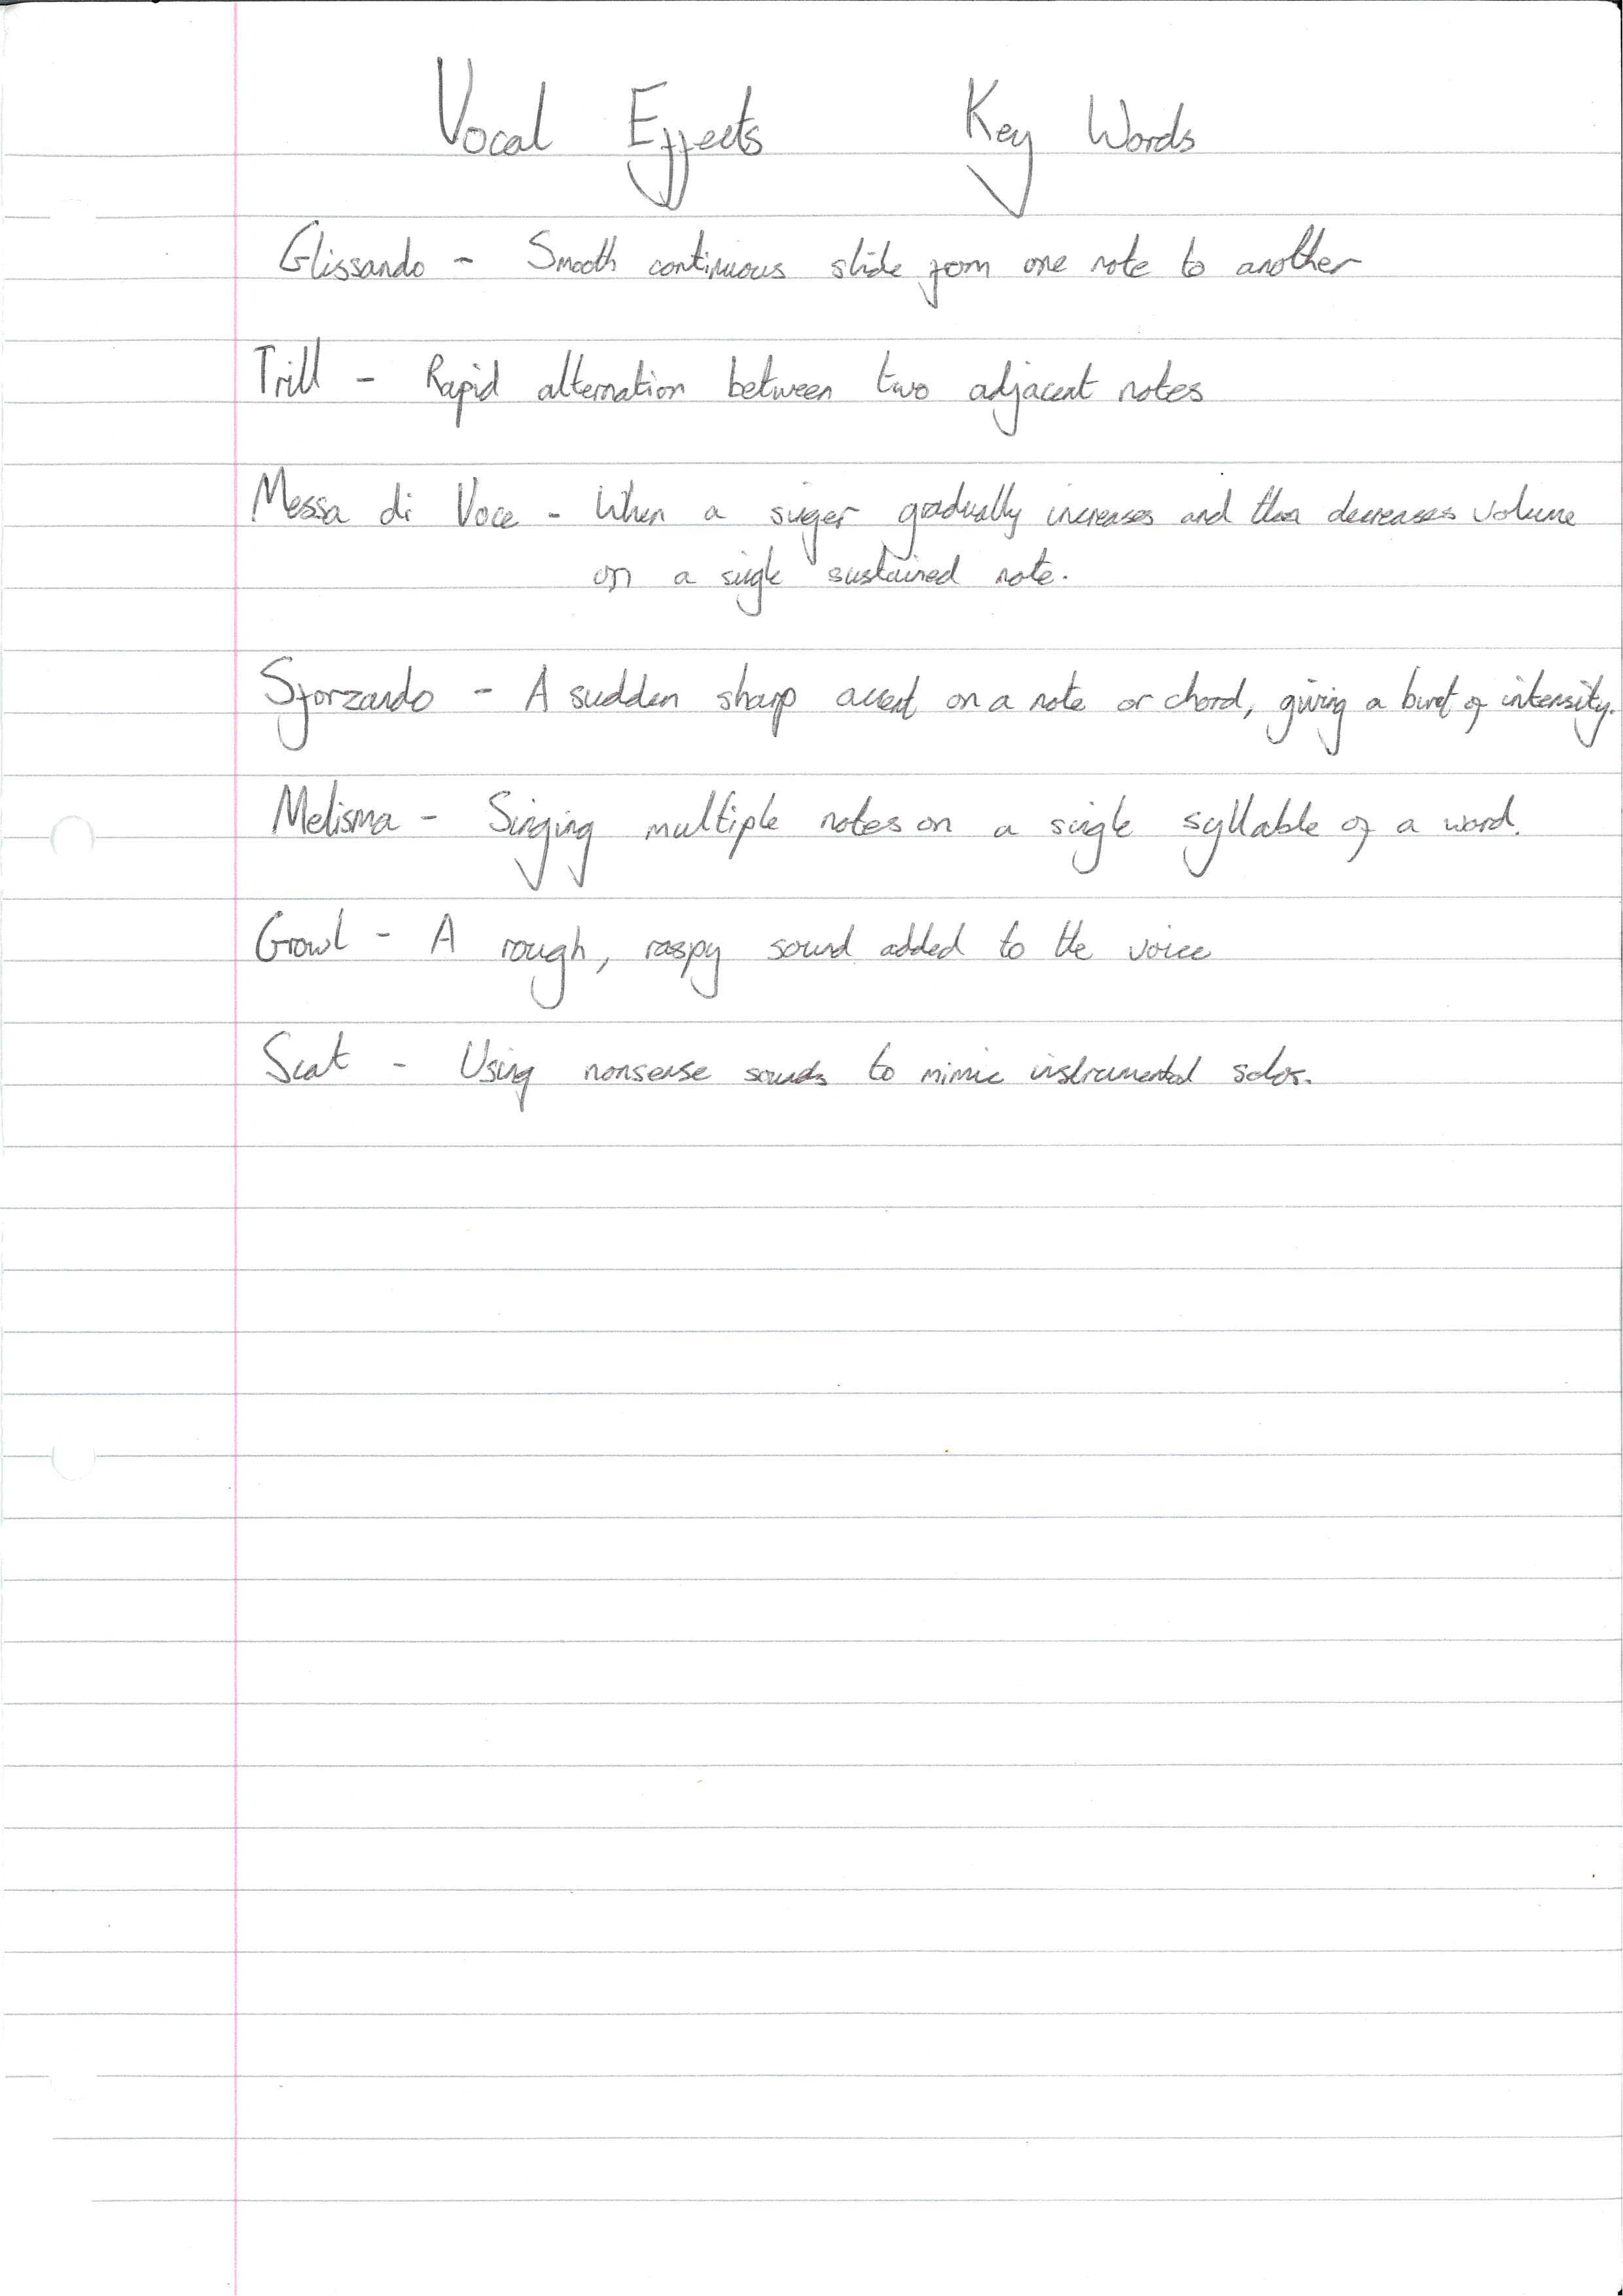 Vocal Effects Key Words
Glissando - Smooth continuous slide from one note to another
Trill - Rapid alternation between two adjacent notes
Messa di Voce - When a singer gradually increases and then decreases volume
on a single sustained note.
Sforzando - A sudden sharp accent on a note or chord, giving a burst of intensity.
Melisma - Singing multiple notes on a single syllable of a word.
Growl - A rough, raspy sound added to the voice
Scat - Using nonsense sounds to mimic instrumental solos.